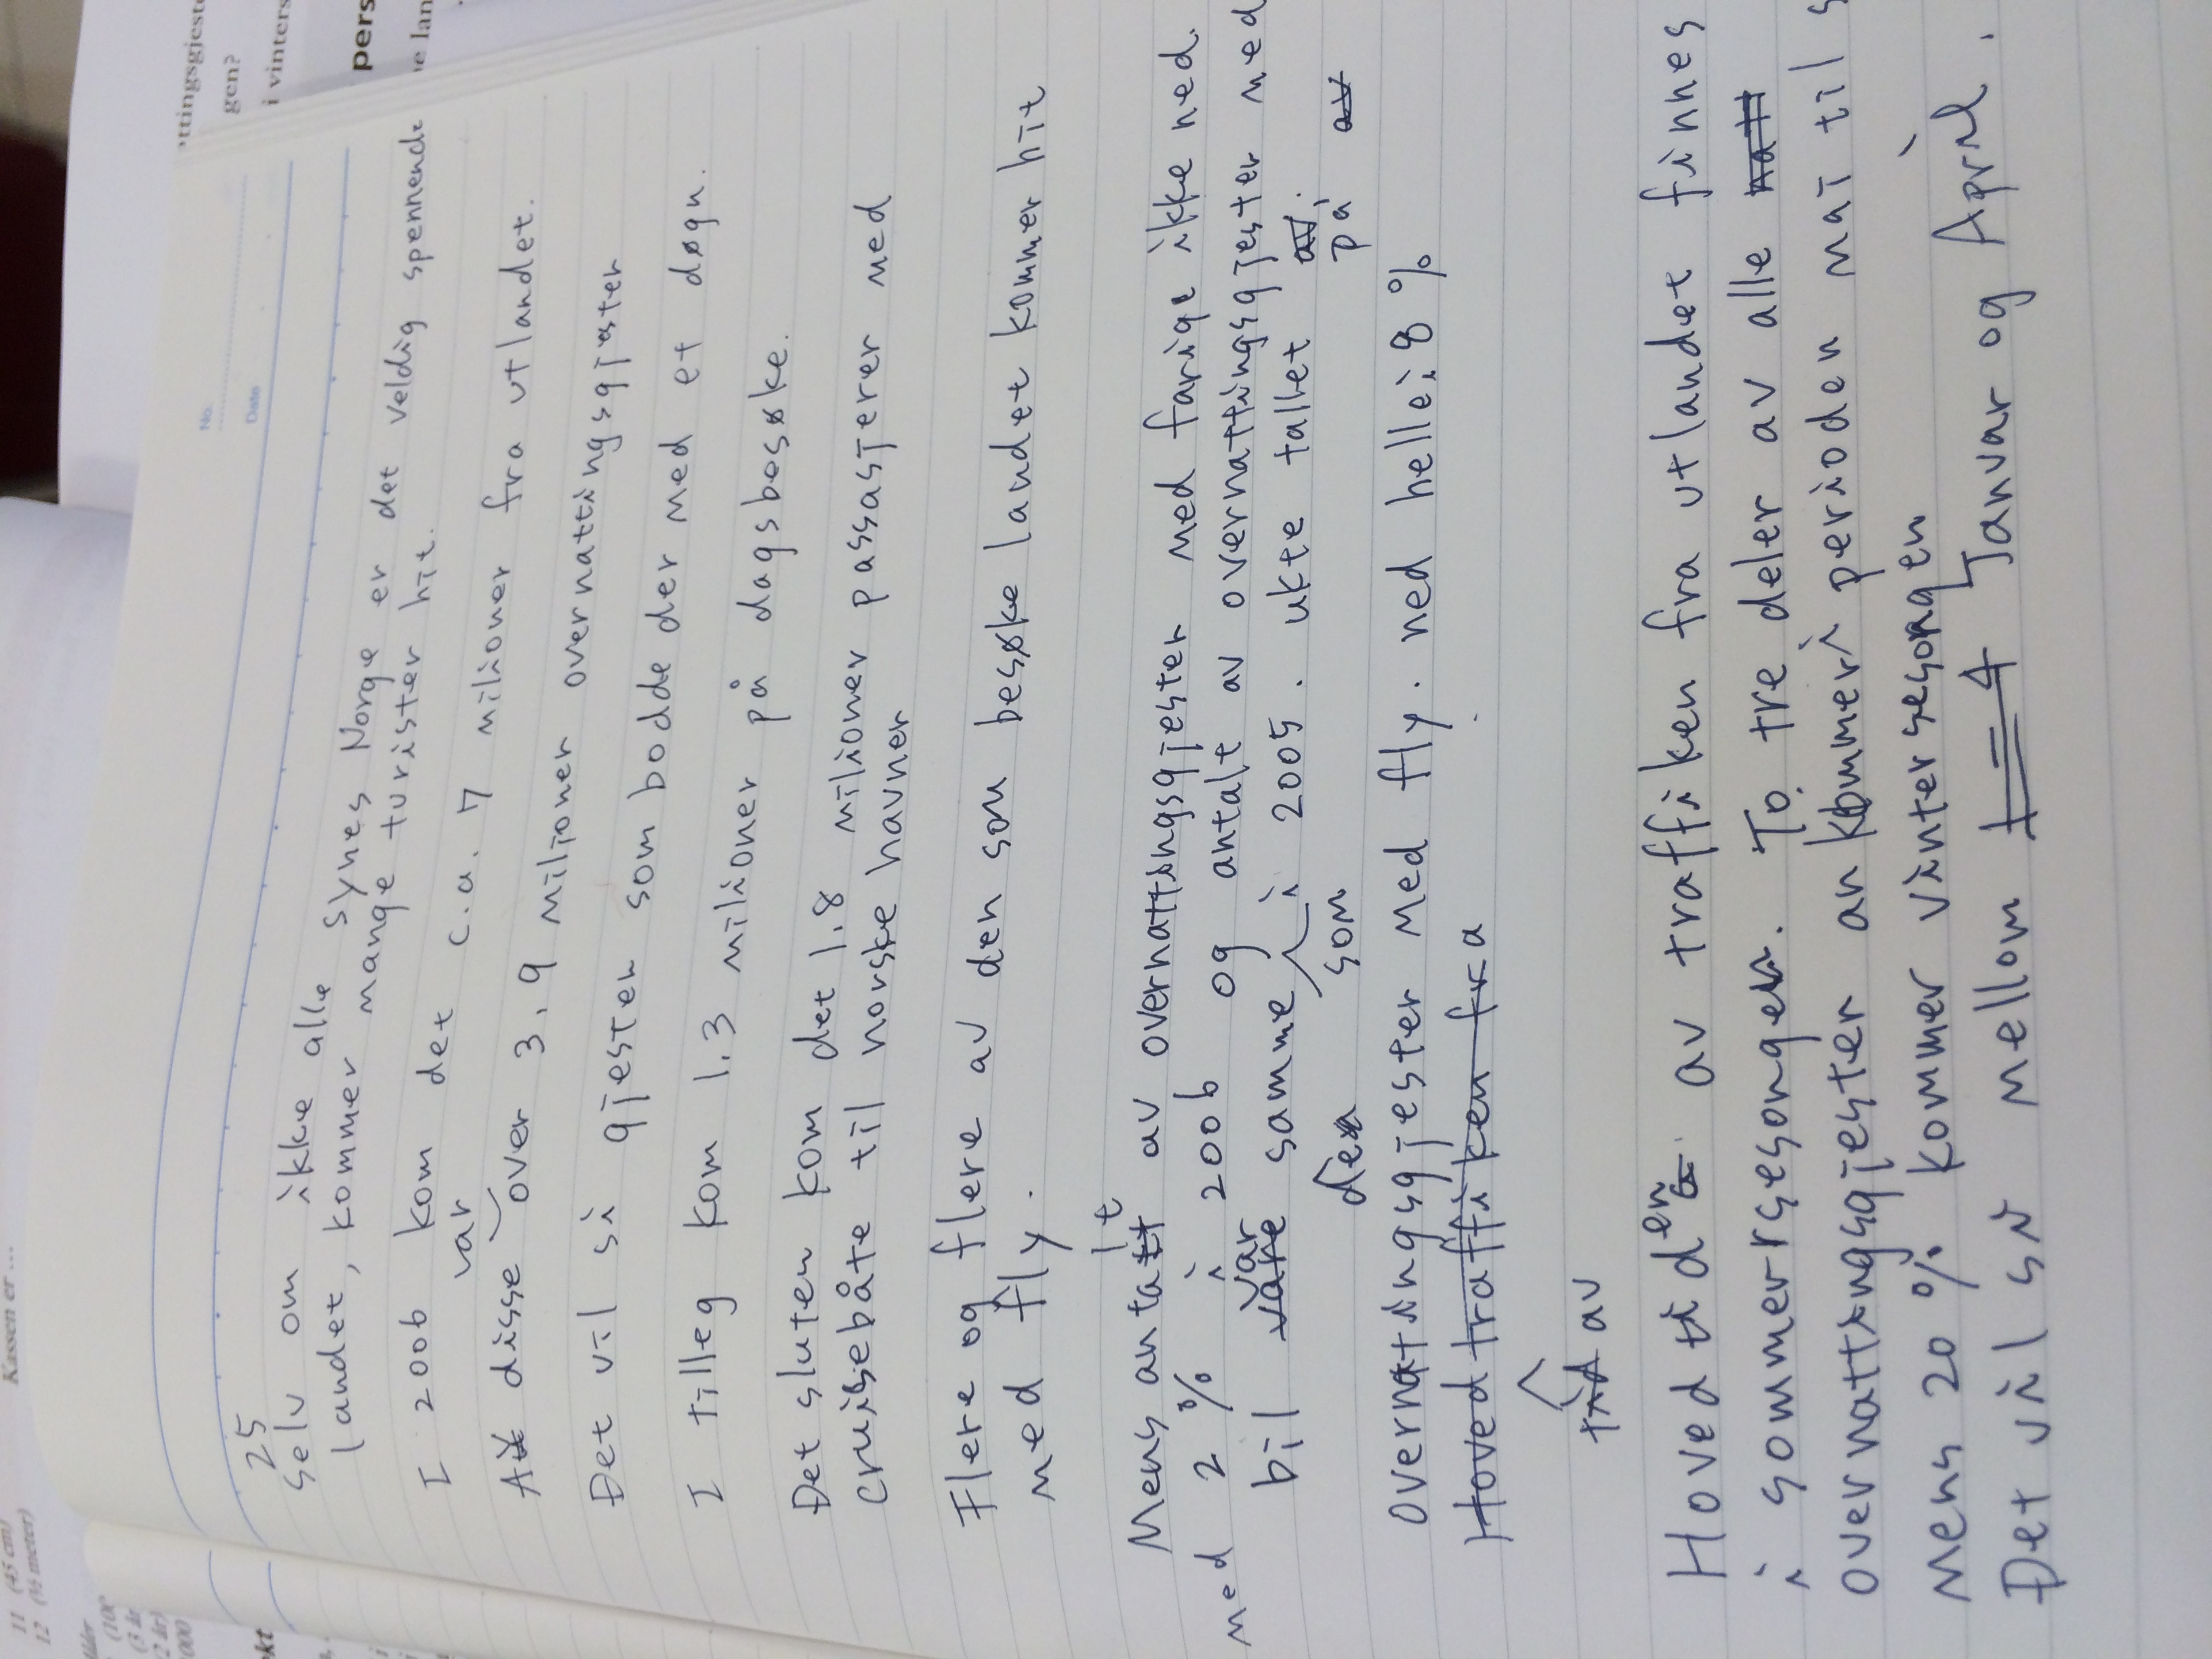 No.
Date
25
Selv om ikke alle synes Norge er det veldig spennende
landet, kommer mange turister hit.
I 2006 kom det c.a. 7 milioner fra utlandet.
var
Av disse over 3,9 miljoner overnattingsgjester
Det vil si gjester som bodde der med et døgn.
I tilleg kom 1.3 milioner på dagsbesøke.
Det sluten kom det 1.8 milioner passasjerer med
cruisebåte til norske havner
Flere og flere av den som besøke landet kommer hit
med fly.
Mens antalt av overnattingsgjester med farige ikke ned.
med 2 % i 2006 og antalt av overnattingsgjester med
bil vare var samme i 2005. ukte tallet av.
den som på av
overnattingsgjester med fly. ned hellei 8 %
Hovedtraffiken fra
tid av
Hoved den av traffiken fra utlandet finnes
i sommersesongen. To tre deler av alle natt
overnattingsgjester ankommer i perioden mai til s
mens 20 % kommer vintersesongen
Det vil si mellom Januar og April.
ttingsgjest
gen?
i vinters
pers
e lan
Kassen er ...
11 (45 cm)
12 (½ meter)